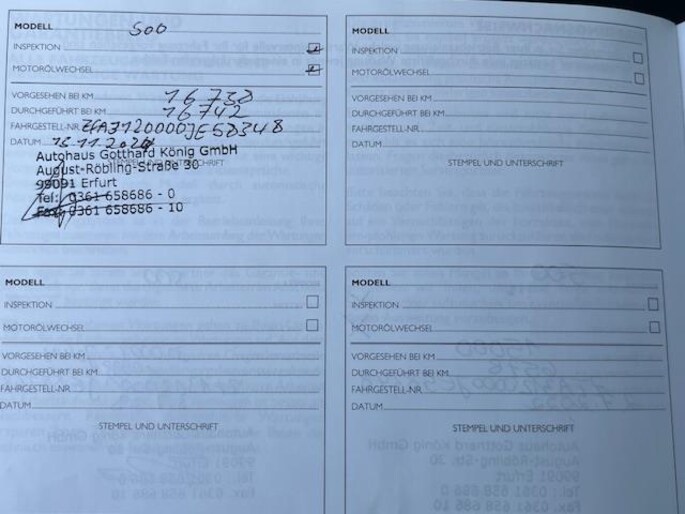 MODELL 500
INSPEKTION
MOTORÖLWECHSEL
VORGESEHEN BEI KM 16 738
DURCHGEFÜHRT BEI KM 16742
FAHRGESTELL-NR. ZFA3120000JE58348
DATUM 13.11.2024
STEMPEL UND UNTERSCHRIFT
Autohaus Gotthard König GmbH
August-Röbling-Straße 30
99091 Erfurt
Tel: 0361 658686 - 0
Fax: 0361 658686 - 10
MODELL
INSPEKTION
MOTORÖLWECHSEL
VORGESEHEN BEI KM
DURCHGEFÜHRT BEI KM
FAHRGESTELL-NR.
DATUM
STEMPEL UND UNTERSCHRIFT
MODELL
INSPEKTION
MOTORÖLWECHSEL
VORGESEHEN BEI KM
DURCHGEFÜHRT BEI KM
FAHRGESTELL-NR.
DATUM
STEMPEL UND UNTERSCHRIFT
MODELL
INSPEKTION
MOTORÖLWECHSEL
VORGESEHEN BEI KM
DURCHGEFÜHRT BEI KM
FAHRGESTELL-NR.
DATUM
STEMPEL UND UNTERSCHRIFT